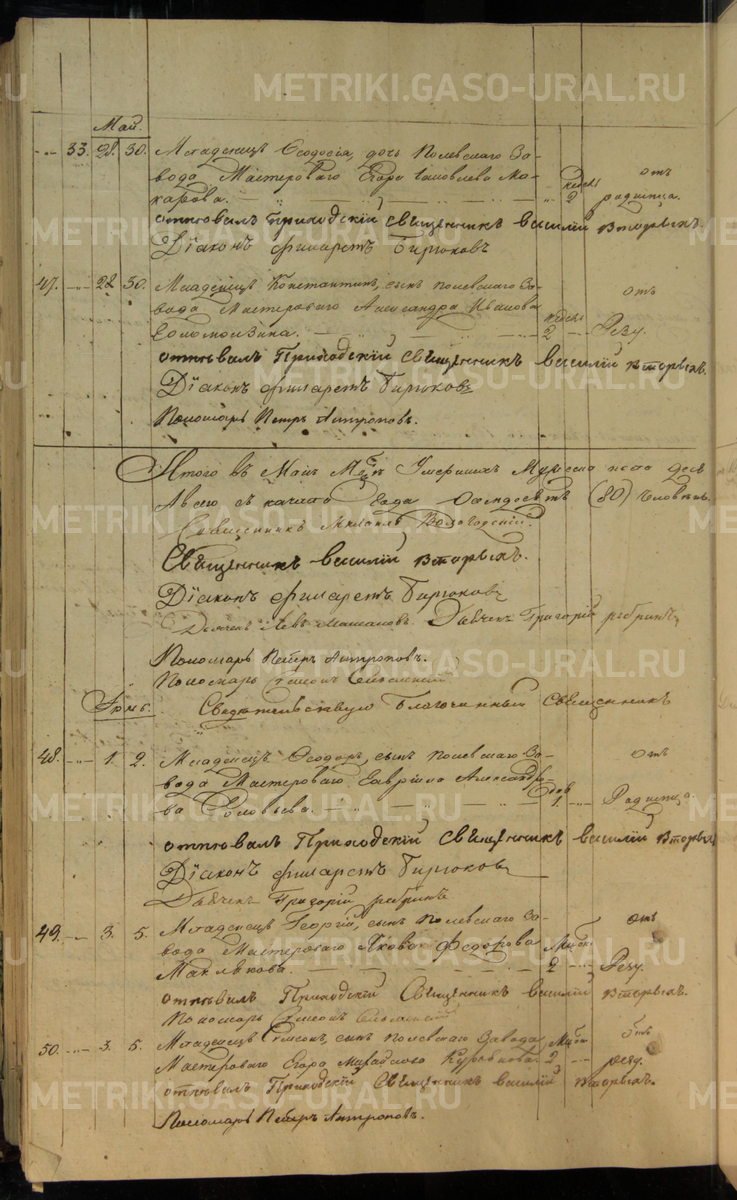 METRIKI.GASO-URAL.RU
Май.
33. 28. 30. Младенецъ Ѳеодосія, дочь Полевскаго За-
вода Мастероваго Егора Ма- 2 отъ
карова. родимца.
отпѣвалъ Приходскій Священникъ Василій Вторыхъ.
Діаконъ Филаретъ Бирюковъ
47. 28 30. Младенецъ Константинъ, сынъ Полевскаго За- отъ
вода Мастероваго Александра Иванова
2 Резу.
отпѣвалъ Приходскій Священникъ Василій Вторыхъ.
Діаконъ Филаретъ Бирюковъ
Пономарь Петръ Антроповъ.
Итого въ Маіѣ Мцѣ Умершихъ Мужеска пола
А всего съ начала Года (80) Человѣкъ.
Священникъ Михаилъ
Священникъ Василій Вторыхъ.
Діаконъ Филаретъ Бирюковъ
Дьячекъ Левъ Дьячекъ Григорій
Пономарь Петръ Антроповъ.
Пономарь Симеонъ
Іюнь. Свидѣтельствую Благочинный Священникъ
48. 1. 2. Младенецъ Ѳеодоръ, сынъ Полевскаго За- отъ
вода Мастероваго Гавріила Александро-
ва Соловьева. 1 Родимца.
отпѣвалъ Приходскій Священникъ Василій Вторыхъ
Діаконъ Филаретъ Бирюковъ
Дьячекъ Григорій
49. 3. 5. Младенецъ Георгій, сынъ Полевскаго За- отъ
вода Мастероваго Якова Федорова
2 Резу.
отпѣвалъ Приходскій Священникъ Василій Вторыхъ.
Пономарь Симеонъ
50. 3. 5. Младенецъ Симеонъ, сынъ Полевскаго Завода отъ
Мастероваго Егора 2 резу.
отпѣвалъ Приходскій Священникъ Василій Вторыхъ.
Пономарь Петръ Антроповъ.